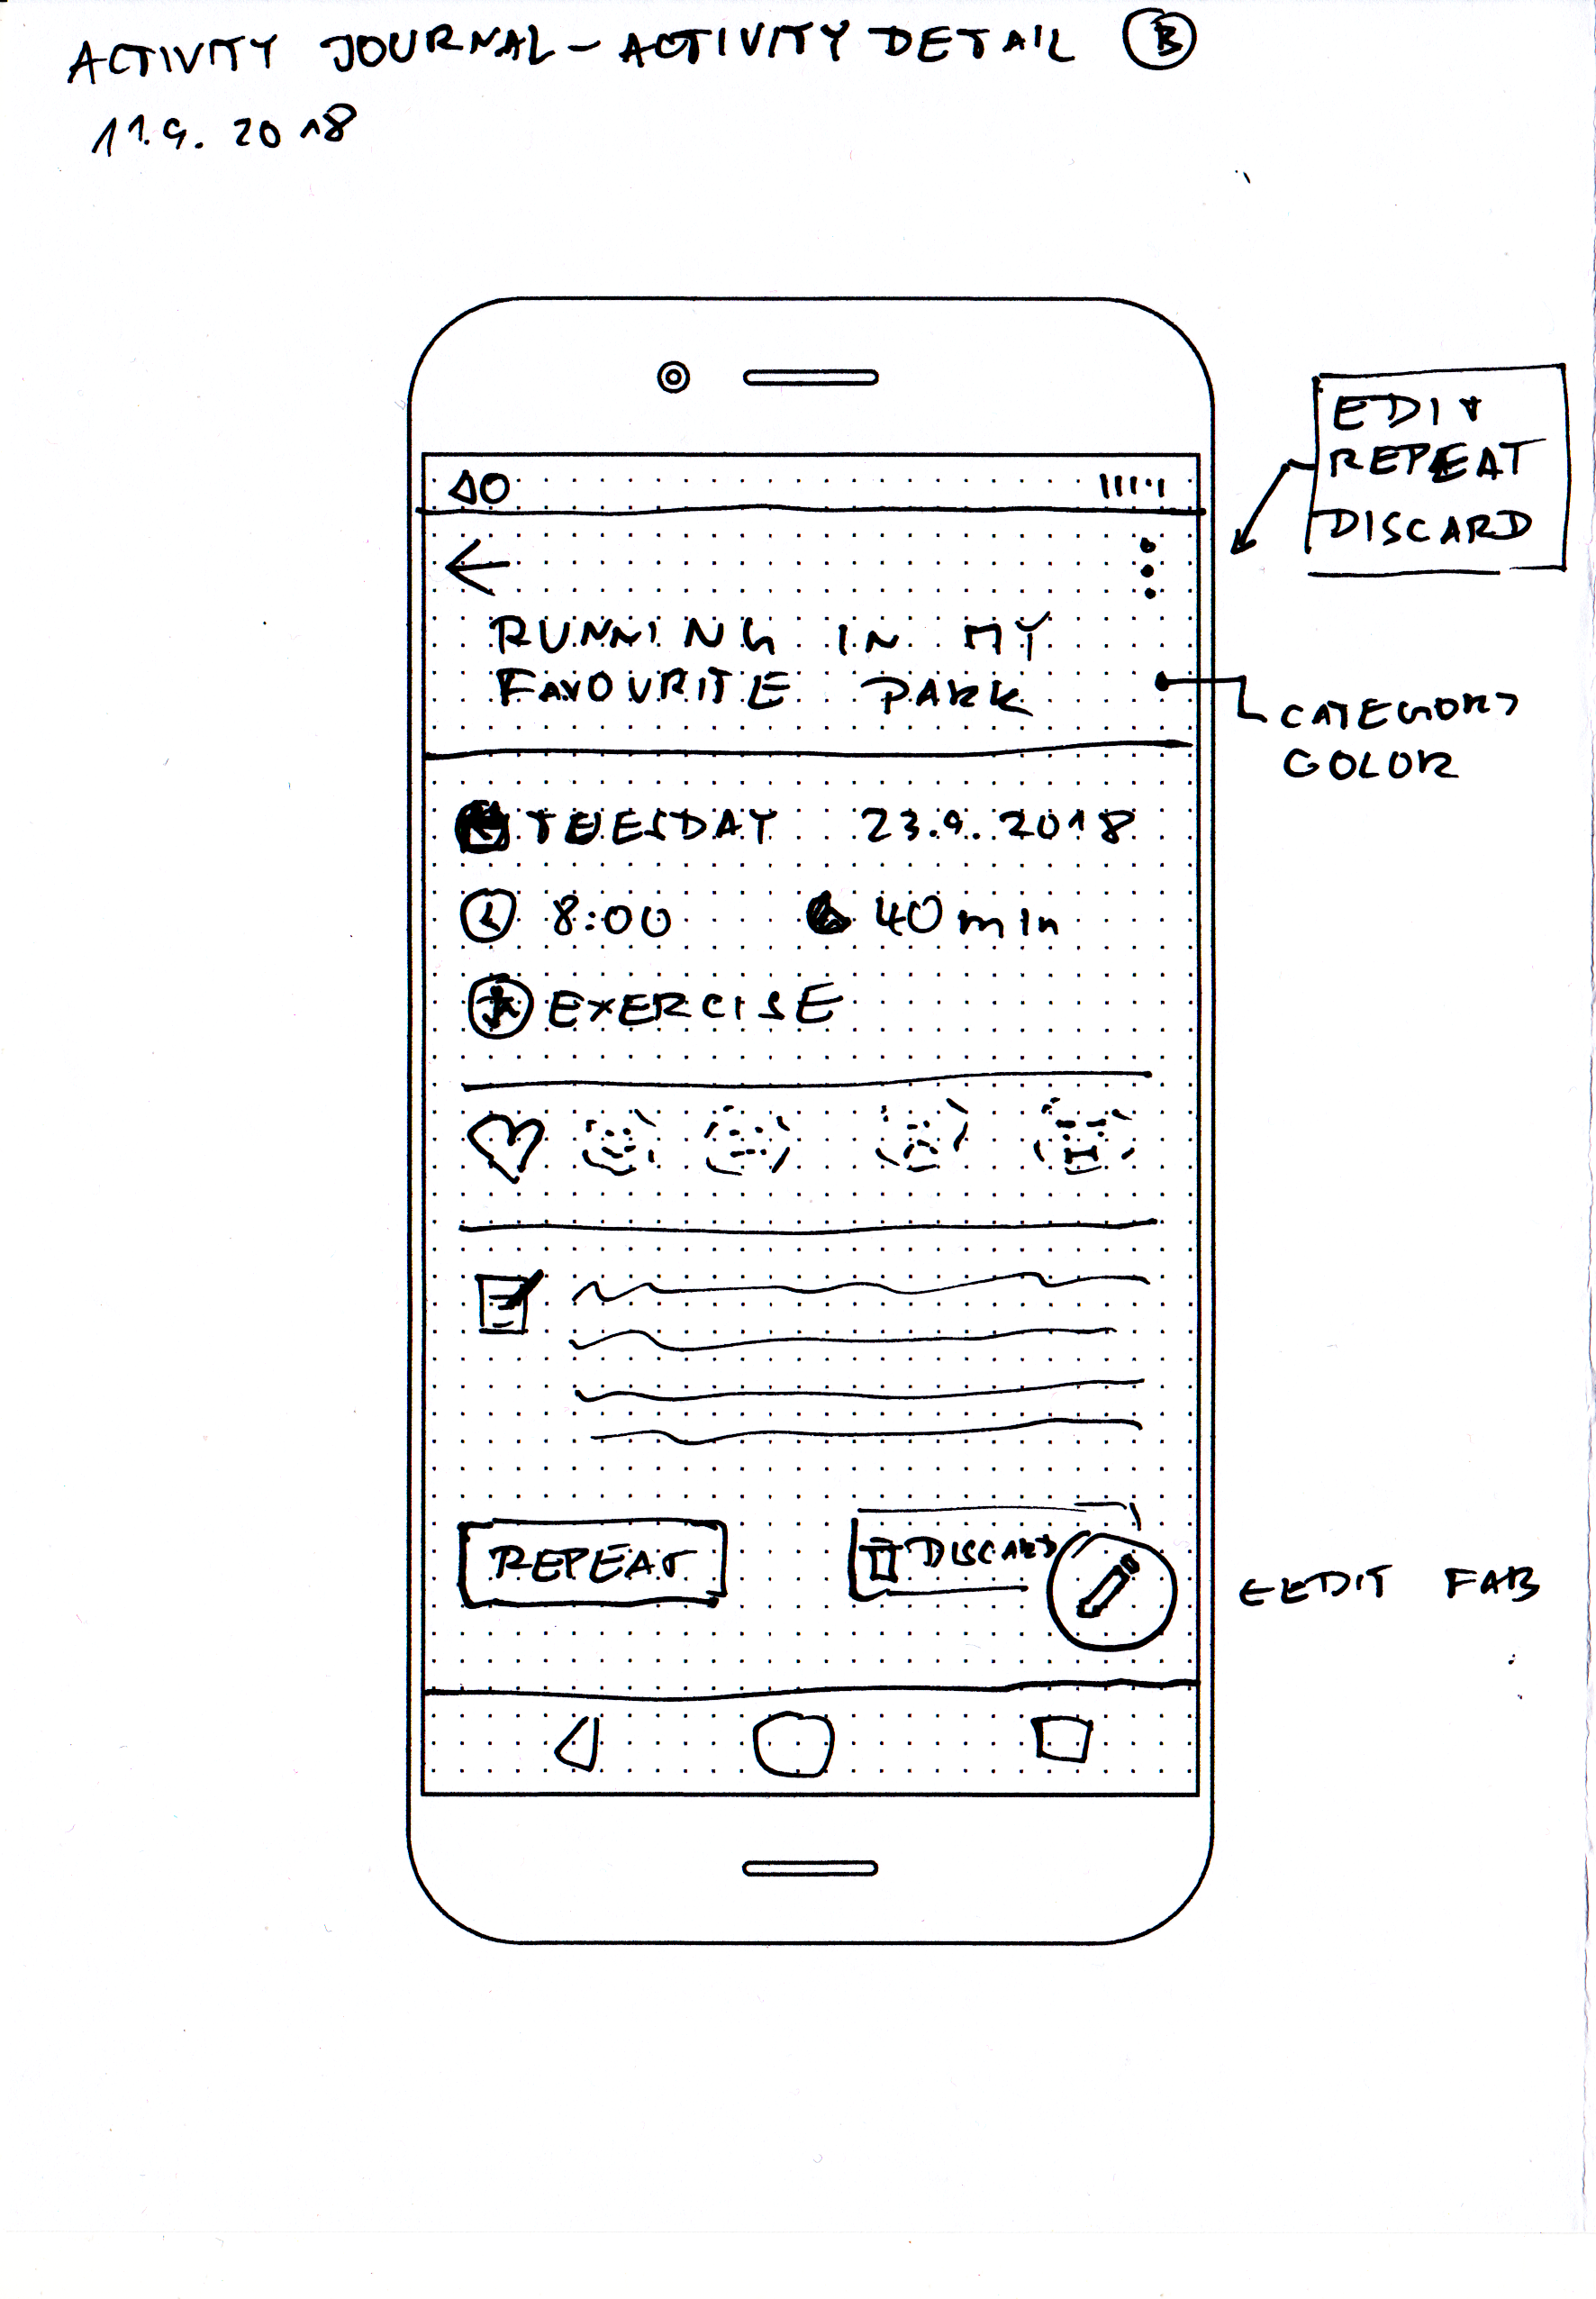 ACTIVITY JOURNAL - ACTIVITY DETAIL B
11.9. 2018
EDIT
REPEAT
DISCARD
RUNNING IN MY
FAVOURITE PARK
CATEGORY
COLOR
TUESDAY 23.9.2018
8:00 40 min
EXERCISE
REPEAT
DISCARD
EDIT FAB